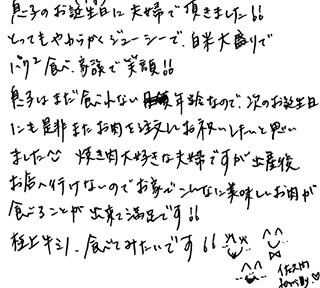 息子のお誕生日に夫婦で頂きました!!
とってもやわらかくジューシーで、白米大盛りで
パク2食べ、家族で笑顔!!
息子はまだ食べれない年齢なので、次のお誕生日
にも是非またお肉を注文しお祝いしたいと思い
ました 焼き肉大好きな夫婦ですが出産後
お店へ行けないのでお家でこんなに美味しいお肉が
食べることが出来て満足です!!
極上牛タン、食べてみたいです!!
family.♡